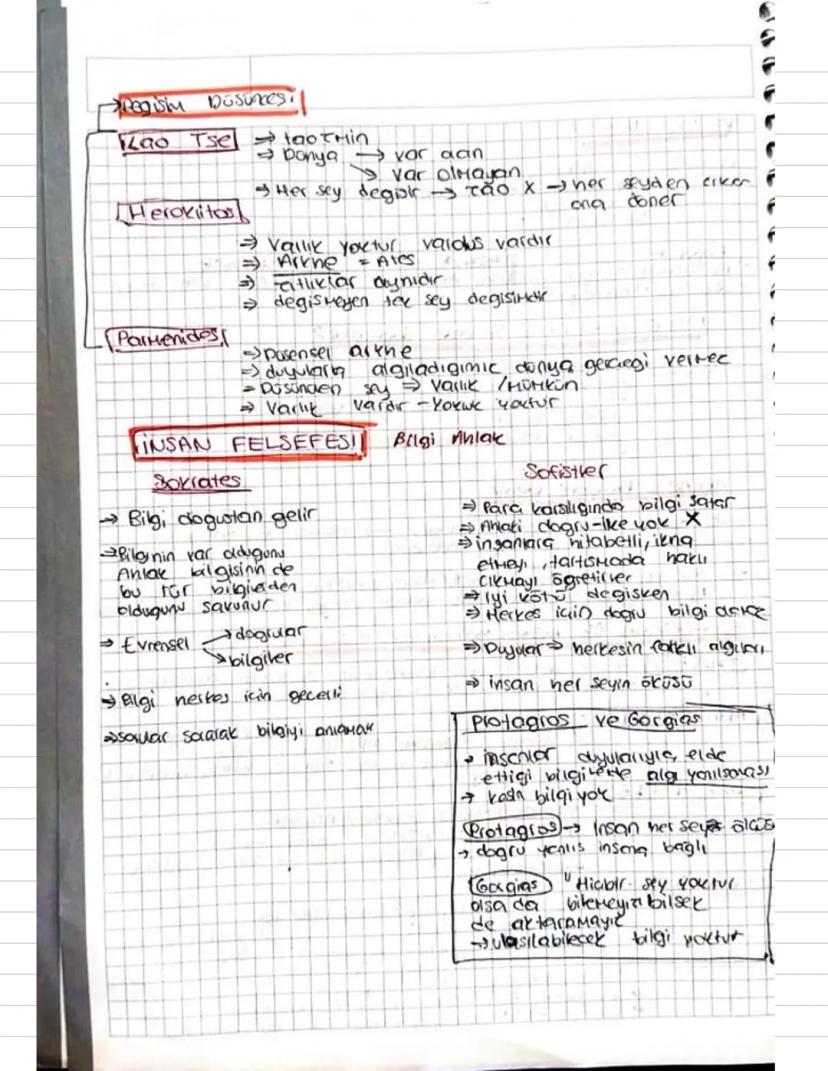 → Değişim Düşüncesi
Lao Tse ⇒ tao
⇒ Dünya → var olan
↘ var olmayan
⇒ Her şey değişir → Tao X → her şeyden çıkar
ona döner
Heroklitos
⇒ Varlık yoktur varoluş vardır
⇒ Arkhe = Ateş
⇒ zıtlıklar aynıdır
⇒ değişmeyen tek şey değişimdir
Parmenides
⇒ Düşünsel arkhe
⇒ duyularla algıladığımız dünya gerçeği vermez
⇒ Düşünülen şey ⇒ Varlık / Mümkün
⇒ Varlık vardır - Yokluk yoktur
İNSAN FELSEFESİ Bilgi Ahlak
Sokrates
→ Bilgi doğuştan gelir
→ Bilginin var olduğunu
Ahlak bilgisinin de
bu tür bilgilerden
olduğunu savunur
⇒ Evrensel → doğrular
↘ bilgiler
→ Bilgi herkes için geçerli
⇒ sorular sorarak bilgiyi anlamak
Sofistler
⇒ Para karşılığında bilgi satar
⇒ Ahlaki doğru-ilke yok X
⇒ insanlara hitabetli, ikna
etmeyi, tartışmada haklı
çıkmayı öğretirler
⇒ İyi kötü değişken
⇒ Herkes için doğru bilgi
⇒ Duyular ⇒ herkesin farklı algıları
⇒ insan her şeyin ölçüsü
Protagros ve Gorgias
• insanlar duyularıyla elde
ettiği bilgilerde algı yanılsaması
→ kesin bilgi yok
Protagros → İnsan her şeyin ölçüsü
→ doğru yanlış insana bağlı
Gorgias "Hiçbir şey yoktur
olsa da bilemeyiz bilsek
de aktaramayız
→ ulaşılabilecek bilgi yoktur